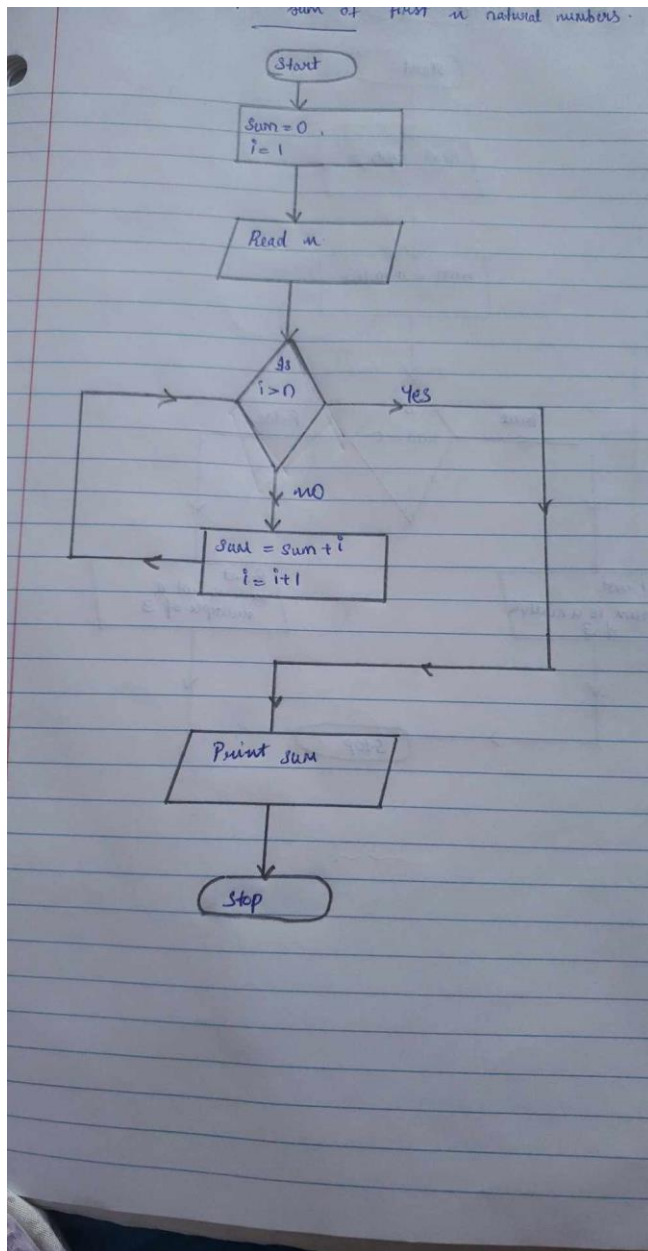 sum of first n natural numbers.
Start
sum = 0
i = 1
Read n
Is
i > n
Yes
no
sum = sum + i
i = i + 1
Print sum
Stop